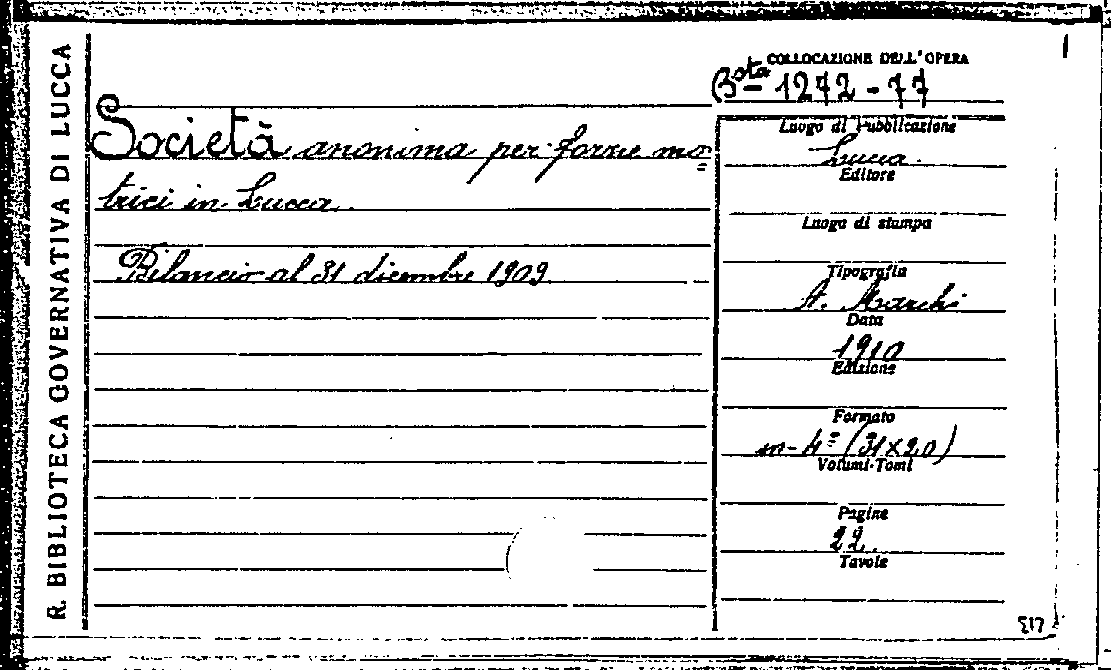 R. BIBLIOTECA GOVERNATIVA DI LUCCA
COLLOCAZIONE DELL'OPERA
Bsta 1272-77
Società anonima per forze mo=
trici in Lucca.
Bilancio al 31 dicembre 1909
Luogo di Pubblicazione
Lucca.
Editore
Luogo di stampa
Tipografia
A. Marchi
Data
1910
Edizione
Formato
in-4° (31x20)
Volumi-Tomi
Pagine
22.
Tavole